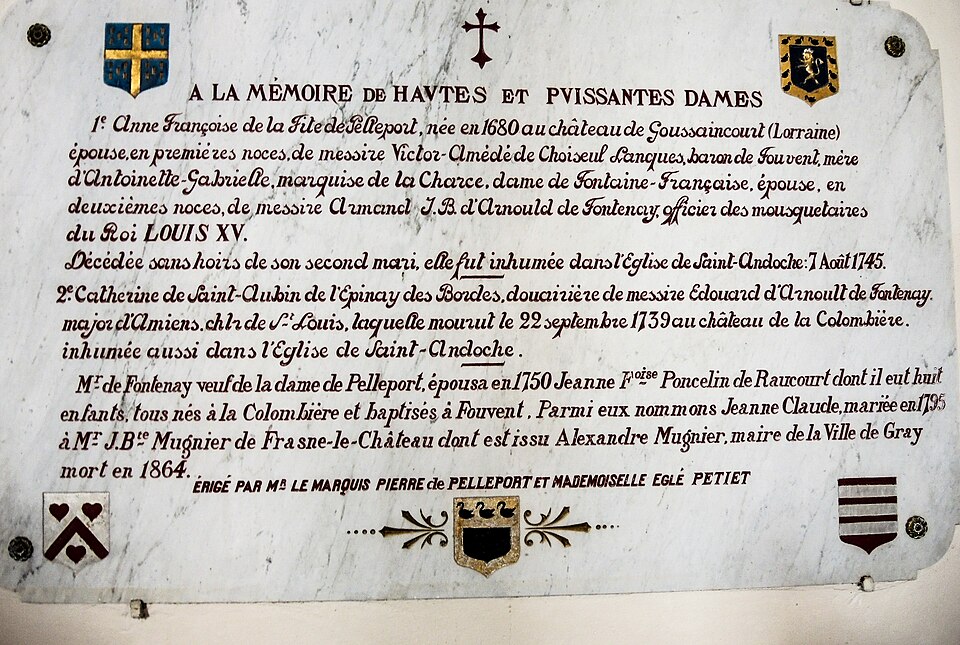 A LA MÉMOIRE DE HAVTES ET PVISSANTES DAMES
1.e Anne Françoise de la Fite de Pelleport, née en 1680 au château de Goussaincourt (Lorraine)
épouse, en premières noces, de messire Victor-Amédé de Choiseul Lanques, baron de Fouvent, mère
d'Antoinette-Gabrielle, marquise de la Charce, dame de Fontaine-Française, épouse, en
deuxièmes noces, de messire Armand J.B. d'Arnould de Fontenay, officier des mousquetaires
du Roi LOUIS XV.
Décédée sans hoirs de son second mari, elle fut inhumée dans l'Eglise de Saint-Andoche: 7 Août 1745.
2.e Catherine de Saint-Aubin de l'Epinay des Bordes, douairière de messire Edouard d'Arnoult de Fontenay.
major d'Amiens, chlr de St Louis, laquelle mourut le 22 septembre 1739 au château de la Colombière.
inhumée aussi dans l'Eglise de Saint-Andoche.
Mr de Fontenay veuf de la dame de Pelleport, épousa en 1750 Jeanne Foise Poncelin de Raucourt dont il eut huit
enfants, tous nés à la Colombière et baptisés à Fouvent. Parmi eux nommons Jeanne Claude, mariée en 1795
à Mr J.Bte Mugnier de Frasne-le-Château dont est issu Alexandre Mugnier, maire de la Ville de Gray
mort en 1864.
ÉRIGÉ PAR MR LE MARQUIS PIERRE de PELLEPORT ET MADEMOISELLE EGLÉ PETIET